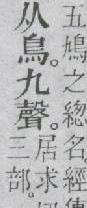 五鳩之緫名。經
从鳥。九聲。
居求
三部。